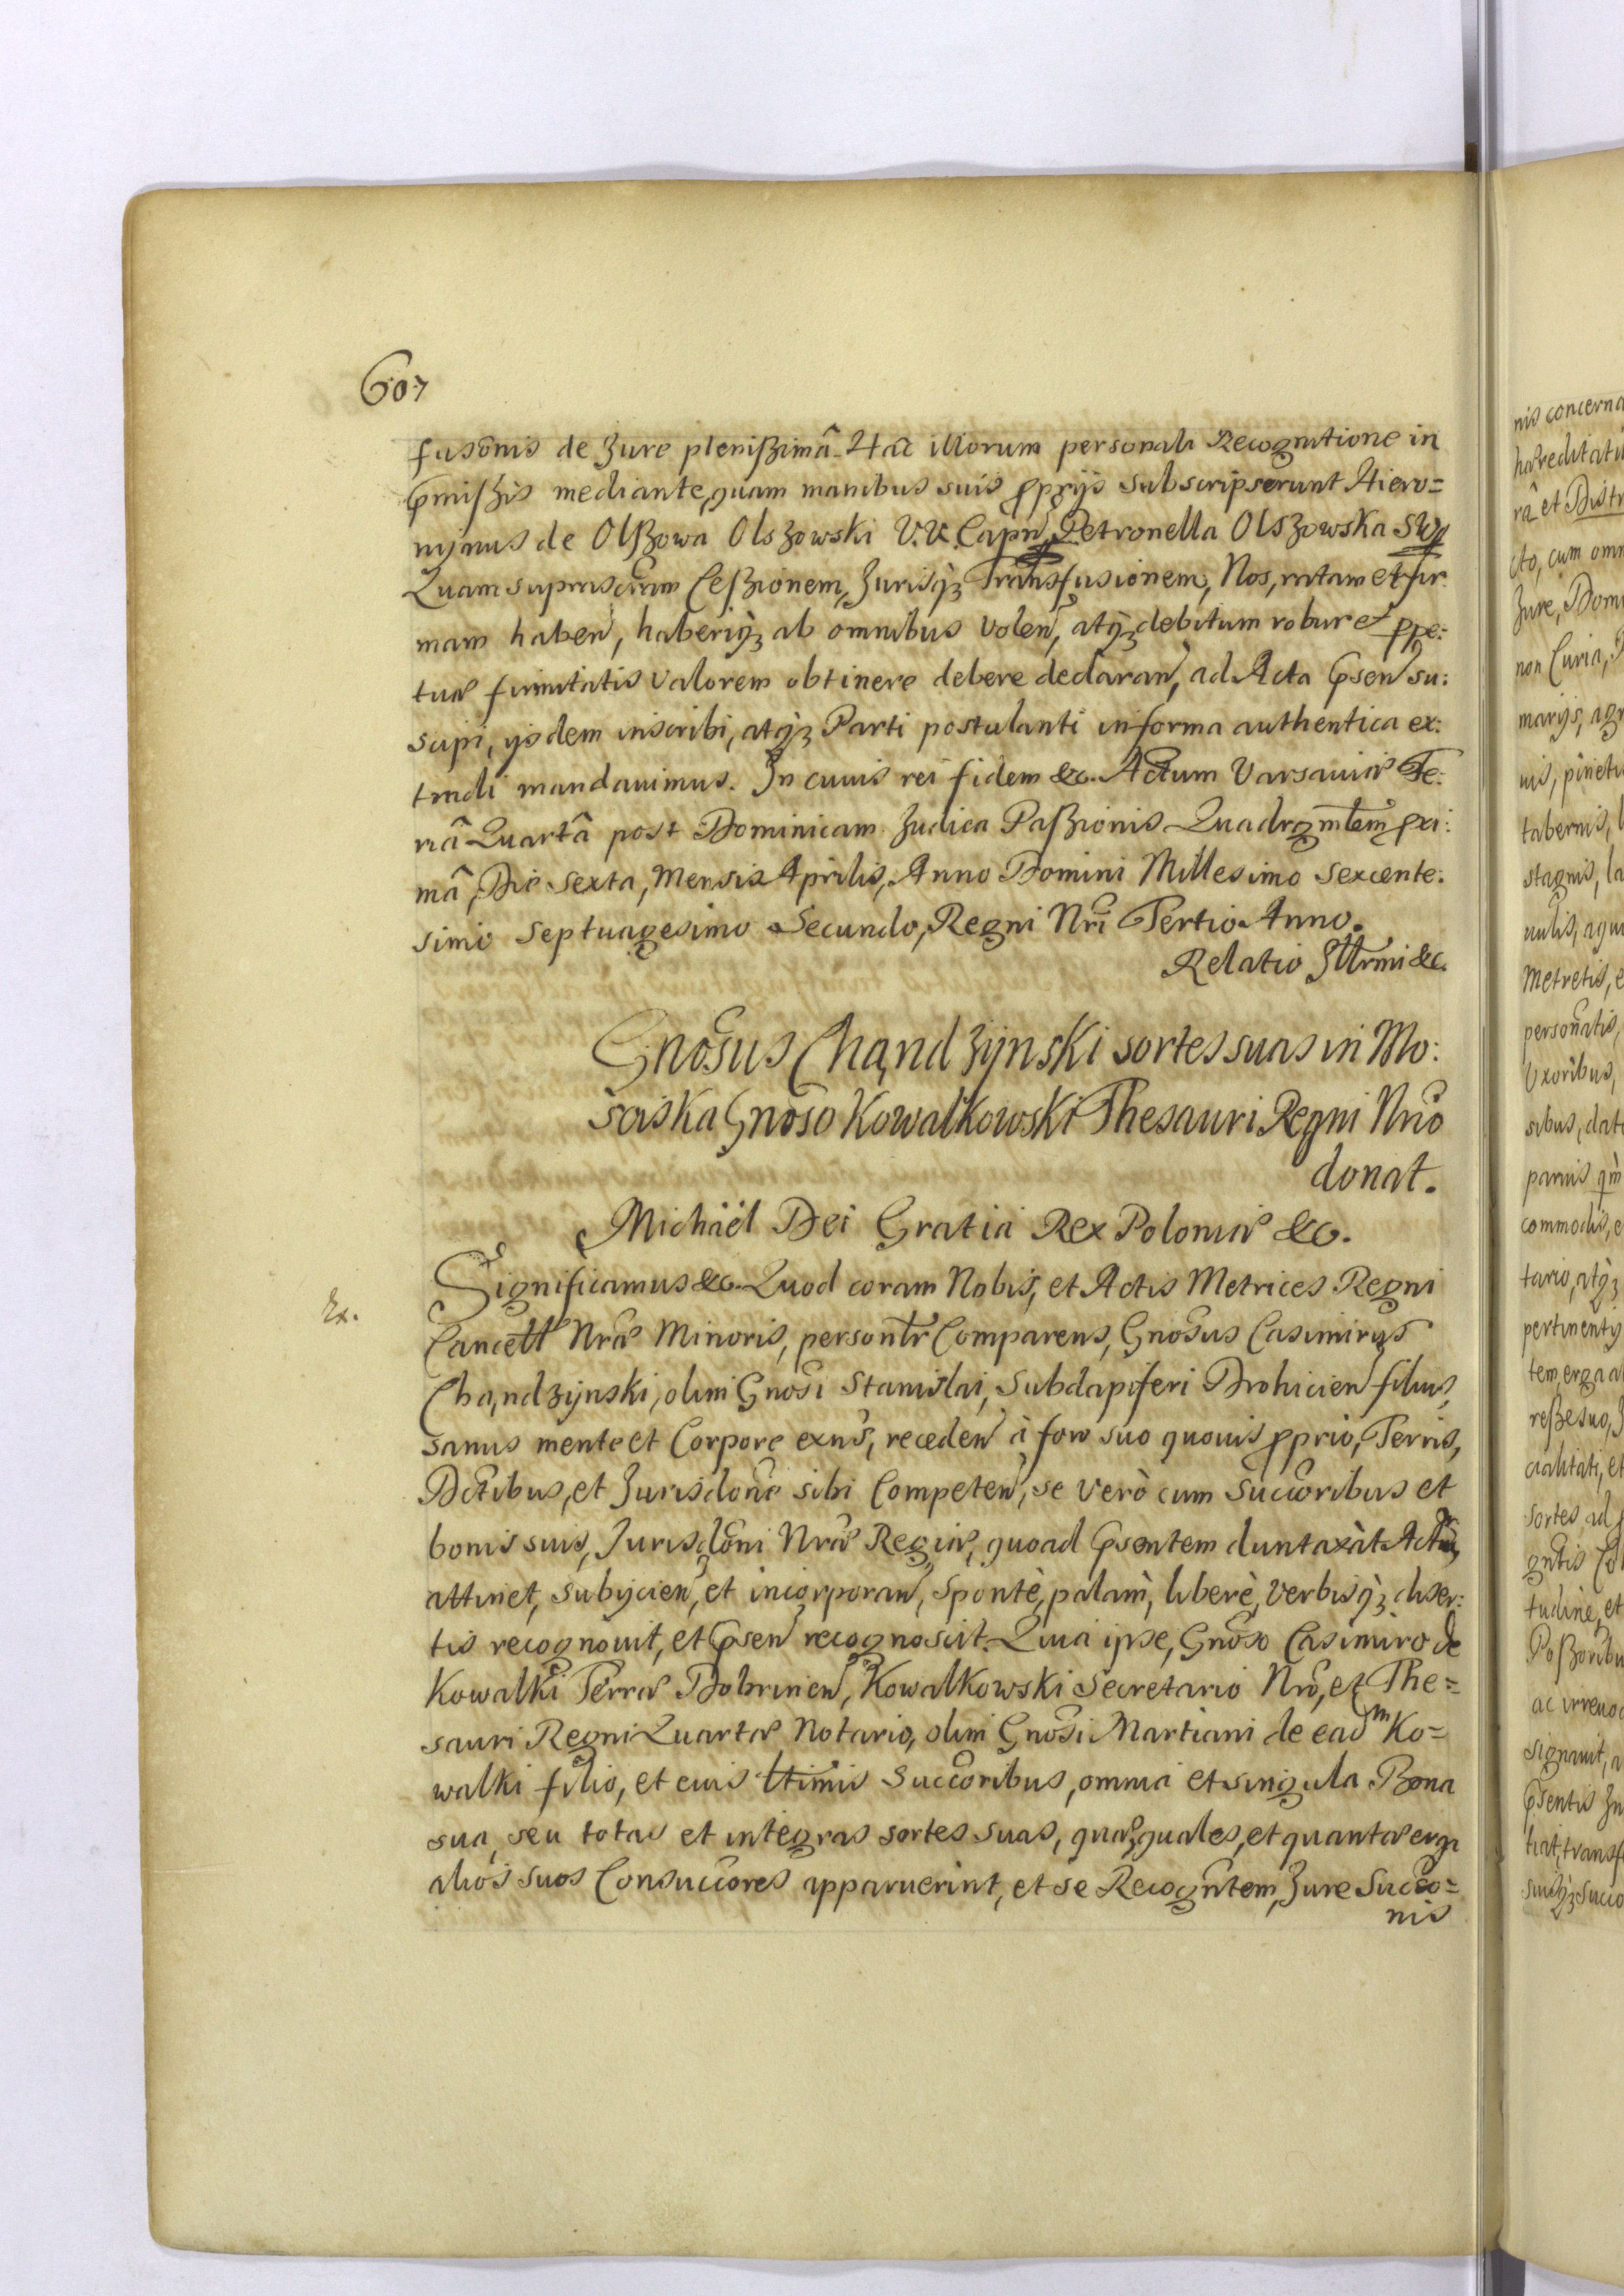 607
fusonis de Jure plenißimâ. Hac illorum personali Recognitione in
pmißis mediante, quam manibus suis pprijs subscripserunt Hiero=
nymus de Olßowa Olszowski V. V. Capn, Petronella Olszowska
Quam suprascram Ceßionem, Jurisq3 Transfusionem, Nos, ratam et fir:
mam haben, haberiq3 ab omnibus volen, atq3 debitum robur et ppe:
tuæ firmitatis valorem obtinere debere declaran, ad Acta psen su:
scipi, ijsdem inscribi, atq3 Parti postulanti in forma authentica ex:
tradi mandavimus. In cuius rei fidem &c. Actum Varsaviæ Fe:
riâ Quartâ post Dominicam Judica Paßionis Quadragmlem proxi:
mâ, Die Sexta, Mensis Aprilis, Anno Domini Millesimo Sexcente:
simo Septuagesimo Secundo, Regni Nri Tertio Anno.
Relatio Illrmi &c.
Gnosus Chądzijnski sortes suas in Mo:
sciska Gnoso Kowalkowski Thesauri Regni Nrio
donat.
Michäel Dei Gratia Rex Poloniæ &c.
Ex.
Significamus &c. Quod coram Nobis, et Actis Metrices Regni
Cancell Nræ Minoris, personlr Comparens, Gnosus Casimirus
Chandzijnski, olim Gnosi Stanislai, Subdapiferi Drohicien filius,
sanus mente et Corpore exns, receden à foro suo quovis pprio, Terris,
Dctibus, et Jurisdone sibi Competen, se verò cum Succoribus et
bonis suis, Jurisdoni Nræ Regiæ, quoad psentem duntaxàt Actum
attinet, subijcien, et incorporan, Spontè, palàm, liberè, verbisq3 diser:
tis recognovit, et psen recognoscit. Quia ipse, Gnoso Casimiro de
Kowalki Terræ Dobrinen, Kowalkowski Secretario Nro, et The=
sauri Regni Quartæ Notario, olim Gnosi Martiani de eadm Ko=
walki filio, et eius ltimis Succoribus, omnia et singula Bona
sua, seu totas et integras sortes suas, quæq3 quales, et quantæ erga
alios suos Consuccores apparuerint, et se Recogntem, Jure Succo=
nis